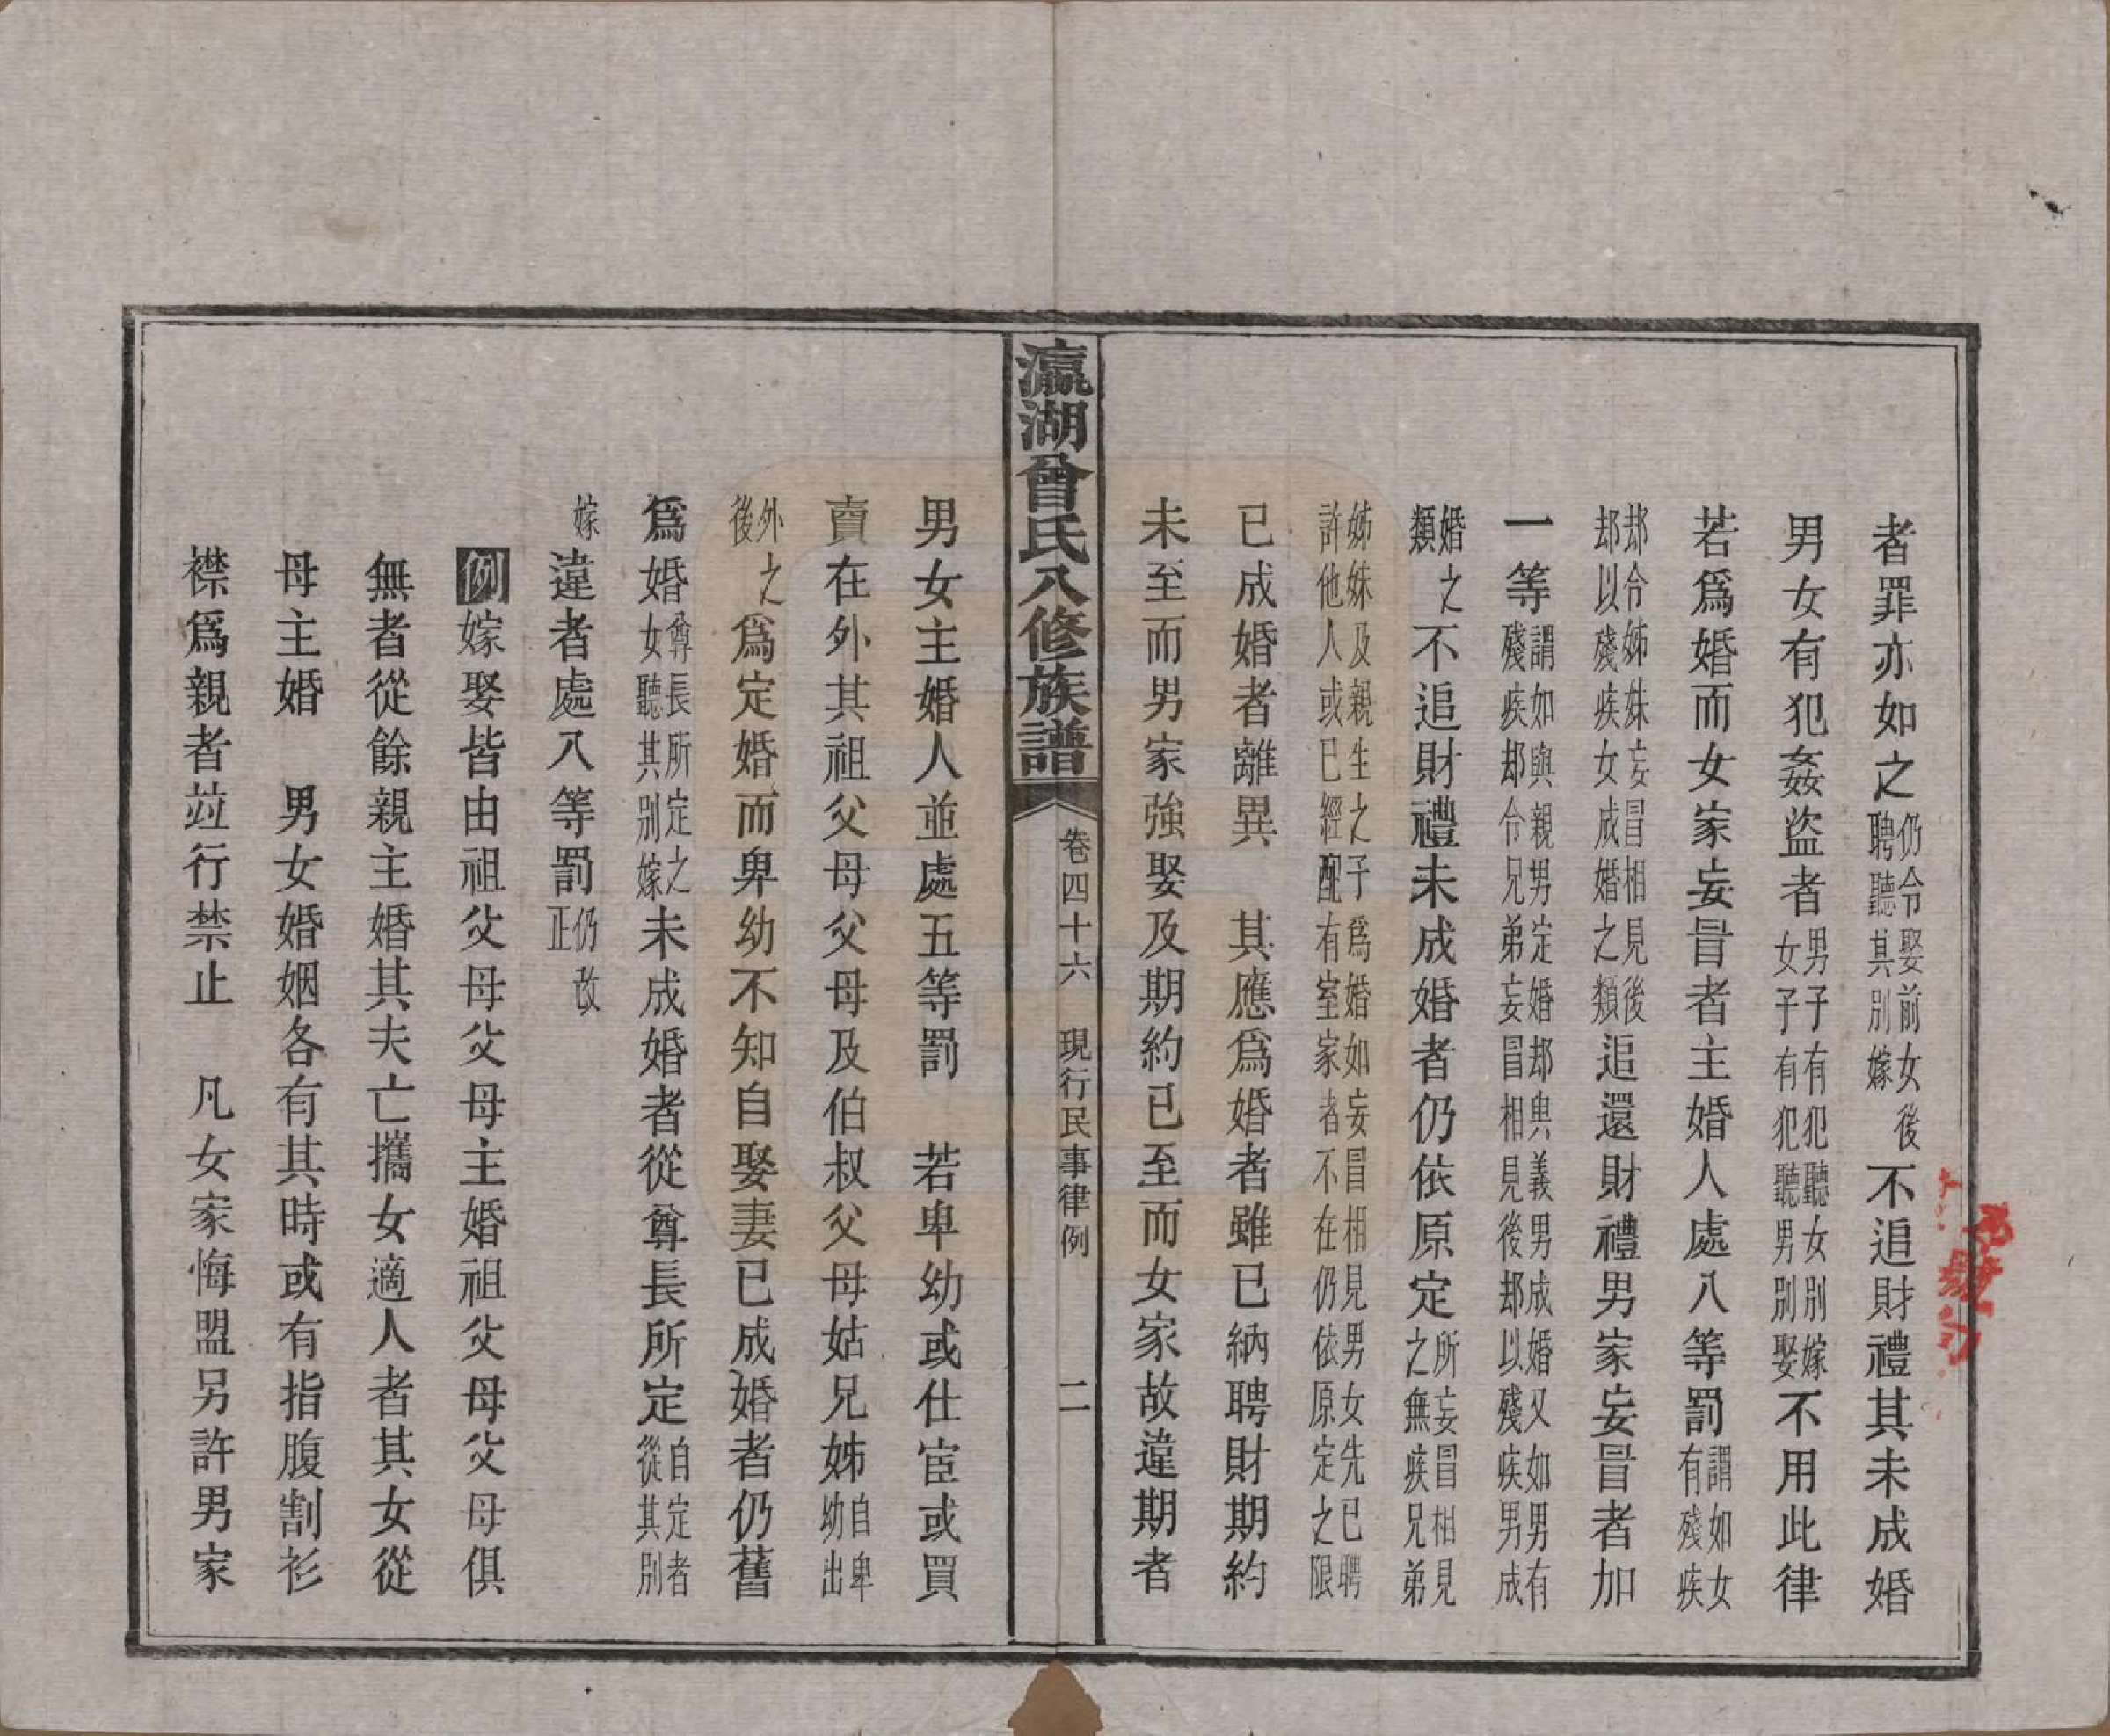 者罪亦如之仍令娶前女後聘聽其別嫁不追財禮其未成婚
男女有犯姦盜者男子有犯聽女別嫁女子有犯聽男別娶不用此律
若爲婚而女家妄冒者主婚人處八等罰謂如女有殘疾
却令姊妹妄冒相見後却以殘疾女成婚之類追還財禮男家妄冒者加
一等謂如與親男定婚却與義男成婚又如男有殘疾却令兄弟妄冒相見後却以殘疾男成
婚之類不追財禮未成婚者仍依原定所妄冒相見之無疾兄弟
姊妹及親生之子爲婚如妄冒相見男女先已聘許他人或已經配有室家者不在仍依原定之限
已成婚者離異　其應爲婚者雖已納聘財期約
未至而男家強娶及期約已至而女家故違期者
瀛湖曾氏八修族譜　卷四十六　現行民事律例　二
男女主婚人並處五等罰　若卑幼或仕宦或買
賣在外其祖父母父母及伯叔父母姑兄姊自卑幼出
外之後爲定婚而卑幼不知自娶妻已成婚者仍舊
爲婚尊長所定之女聽其別嫁未成婚者從尊長所定自定者從其別
嫁違者處八等罰仍改正
例嫁娶皆由祖父母父母主婚祖父母父母俱
無者從餘親主婚其夫亡攜女適人者其女從
母主婚　男女婚姻各有其時或有指腹割衫
襟爲親者竝行禁止　凡女家悔盟另許男家